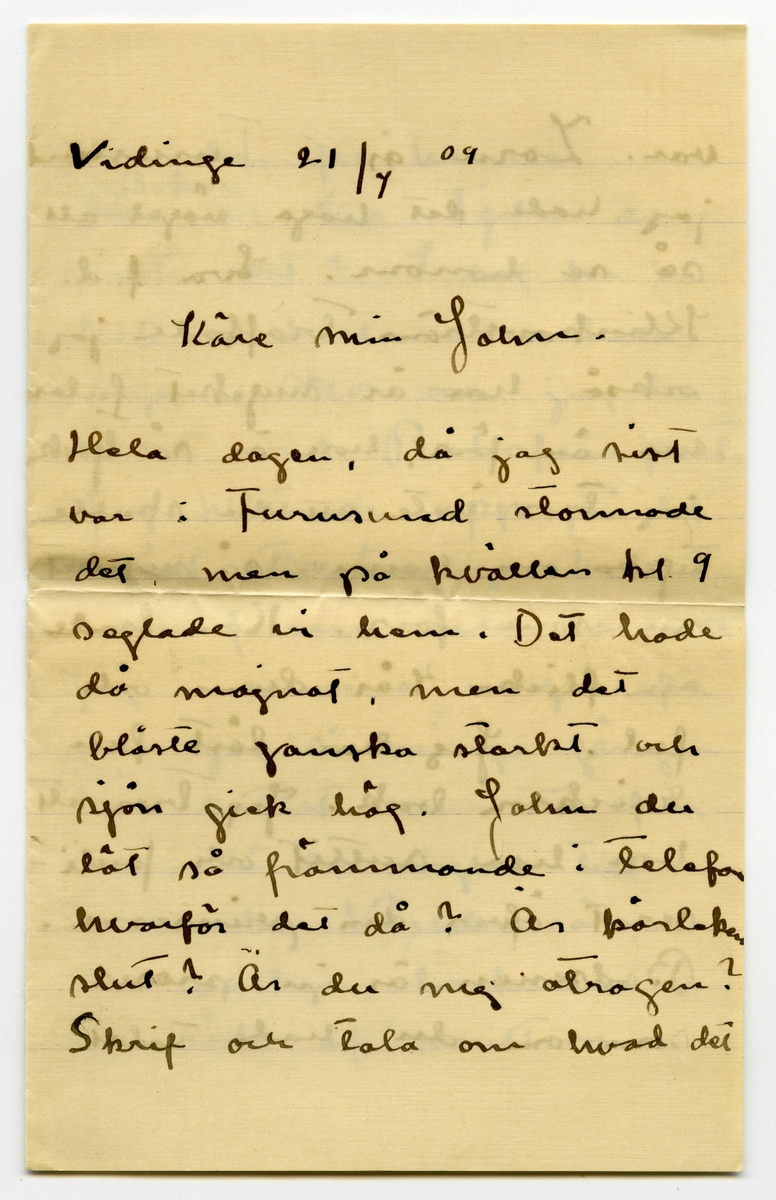 Vidinge 21/7 09
Käre min John.
Hela dagen, då jag sist
var i Furusund stormade
det, men på kvällen kl. 9
seglade vi hem. Det hade
då mognat, men det
blåste ganska starkt och
sjön gick hög. John du
lät så främmande i telefon
hvarför det då? Är kärleken
slut? Är du mig otrogen?
Skrif och tala om hvad det